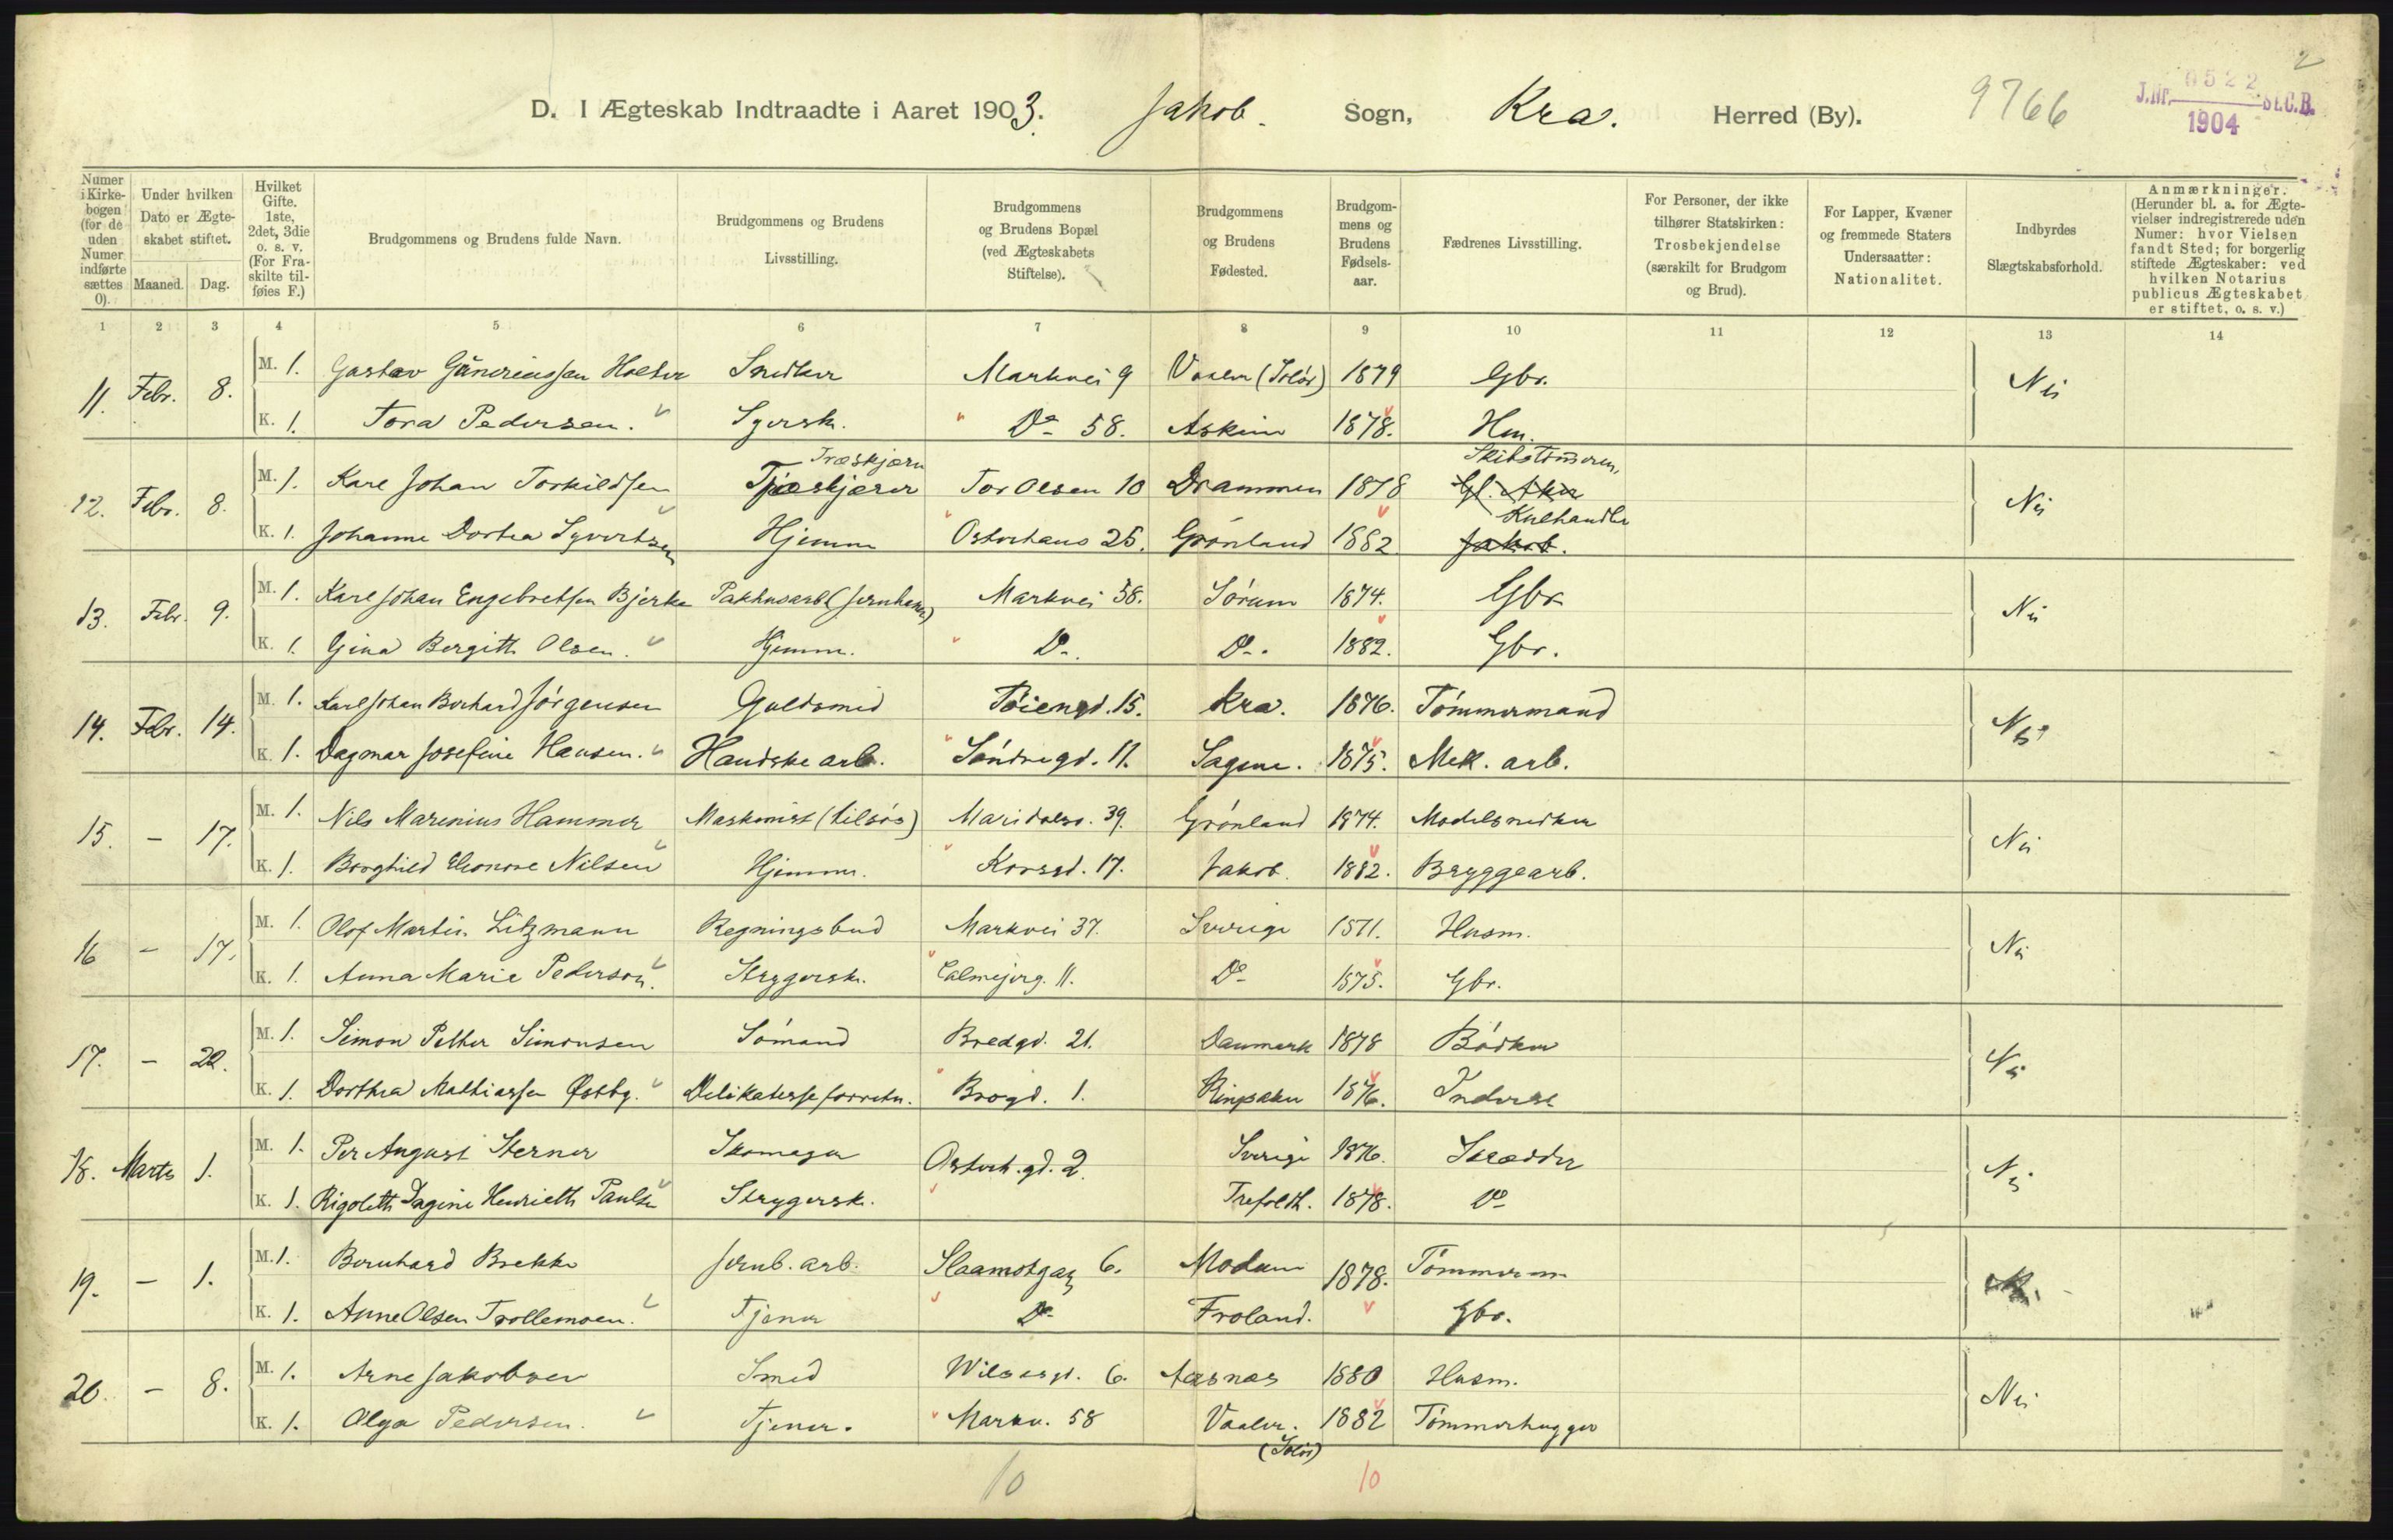 2
D. I Ægteskab Indtraadte i Aaret 1903. Jakob. Sogn, Kra. Herred (By). 9766
J.Nr. 0522 St.C.B.
1904
Numer i Kirkebogen (for de uden Numer indførte sættes 0).
Under hvilken Dato er Ægteskabet stiftet.
Maaned. Dag.
Hvilket Gifte. 1ste, 2det, 3die o. s. v. (For Fraskilte tilføies F.)
Brudgommens og Brudens fulde Navn.
Brudgommens og Brudens Livsstilling.
Brudgommens og Brudens Bopæl (ved Ægteskabets Stiftelse).
Brudgommens og Brudens Fødested.
Brudgommens og Brudens Fødselsaar.
Fædrenes Livsstilling.
For Personer, der ikke tilhører Statskirken: Trosbekjendelse (særskilt for Brudgom og Brud).
For Lapper, Kvæner og fremmede Staters Undersaatter: Nationalitet.
Indbyrdes Slægtskabsforhold.
Anmærkninger. (Herunder bl. a. for Ægtevielser indregistrerede uden Numer: hvor Vielsen fandt Sted; for borgerlig stiftede Ægteskaber: ved hvilken Notarius publicus Ægteskabet er stiftet, o. s. v.)
1 2 3 4 5 6 7 8 9 10 11 12 13 14
11. Febr. 8. M. 1. Gustav Holter Snedker Markvei 9 Vaaler (Solør) 1879 Gbr. Nei
K. 1. Tora Pedersen. Syersk. Do 58. Askim 1878. Hm.
Træskjærer Skibstømerm.
12. Febr. 8. M. 1. Karl Johan Torkildsen Træskjærer Tor Olsen 10 Drammen 1878 Gl. Aker Nei
Kulhandler
K. 1. Johanne Dortea Syvertsen Hjemme Osterhaus 25. Grønland 1882 Jakob.
13. Febr. 9. M. 1. Karl Johan Engebretsen Bjerke Pakhusarb. (Jernbanen) Markvei 58. Sørum 1874. Gbr. Nei
K. 1. Gina Bergitte Olsen. Hjemme. Do. Do. 1882. Gbr.
14. Febr. 14. M. 1. Karl Johan Jørgensen Guldsmed Tøiengd. 15. Kra. 1876. Tømmermand Nei
K. 1. Dagmar Josefine Hansen. Handskearb. Søndregd. 11. Sagene. 1875. Mek. arb.
15. – 17. M. 1. Nils Marenius Hammer Maskinist (tilsøs) Maridalsv. 39. Grønland 1874. Modelsnedker Nei
K. 1. Borghild Eleonore Nilsen Hjemme. Korsgd. 17. Jakob. 1882. Bryggearb.
16 – 17. M. 1. Olof Martin Litzmann Regningsbud Markvei 37. Sverige 1871. Husm. Nei
K. 1. Anna Marie Pederson. Strygersk. Calmejerg. 11. Do 1875. Gbr.
17. – 22. M. 1. Simon Petter Simonsen Sømand Bredgd. 21. Danmark 1878 Bødker Nei
K. 1. Dorthea Mathiassen Østby. Delikatesseforretn. Brogd. 1. Ringsaker 1876. Inderst
18. Marts 1. M. 1. Per August Sterner Skomager Osterh.gd. 2. Sverige 1876. Skrædder Nei
K. 1. Rigoletta Dagine Henriette Paulsen Strygersk. Trefoldh. 1878. Do
19. – 1. M. 1. Bernhard Brekke Jernb. arb. Slaamotgang 6. Modum 1878. Tømmerm Nei.
K. 1. Anne Olsen Trollemoen. Tjener Do Froland. Gbr.
20. – 8. M. 1. Arne Jakobsen Smed Wilsesgd. 6. Aasnes 1880 Husm. Nei
K. 1. Olga Pedersen. Tjener. Markv. 58 Vaaler. (Solør) 1882 Tømmerhugger
10 10